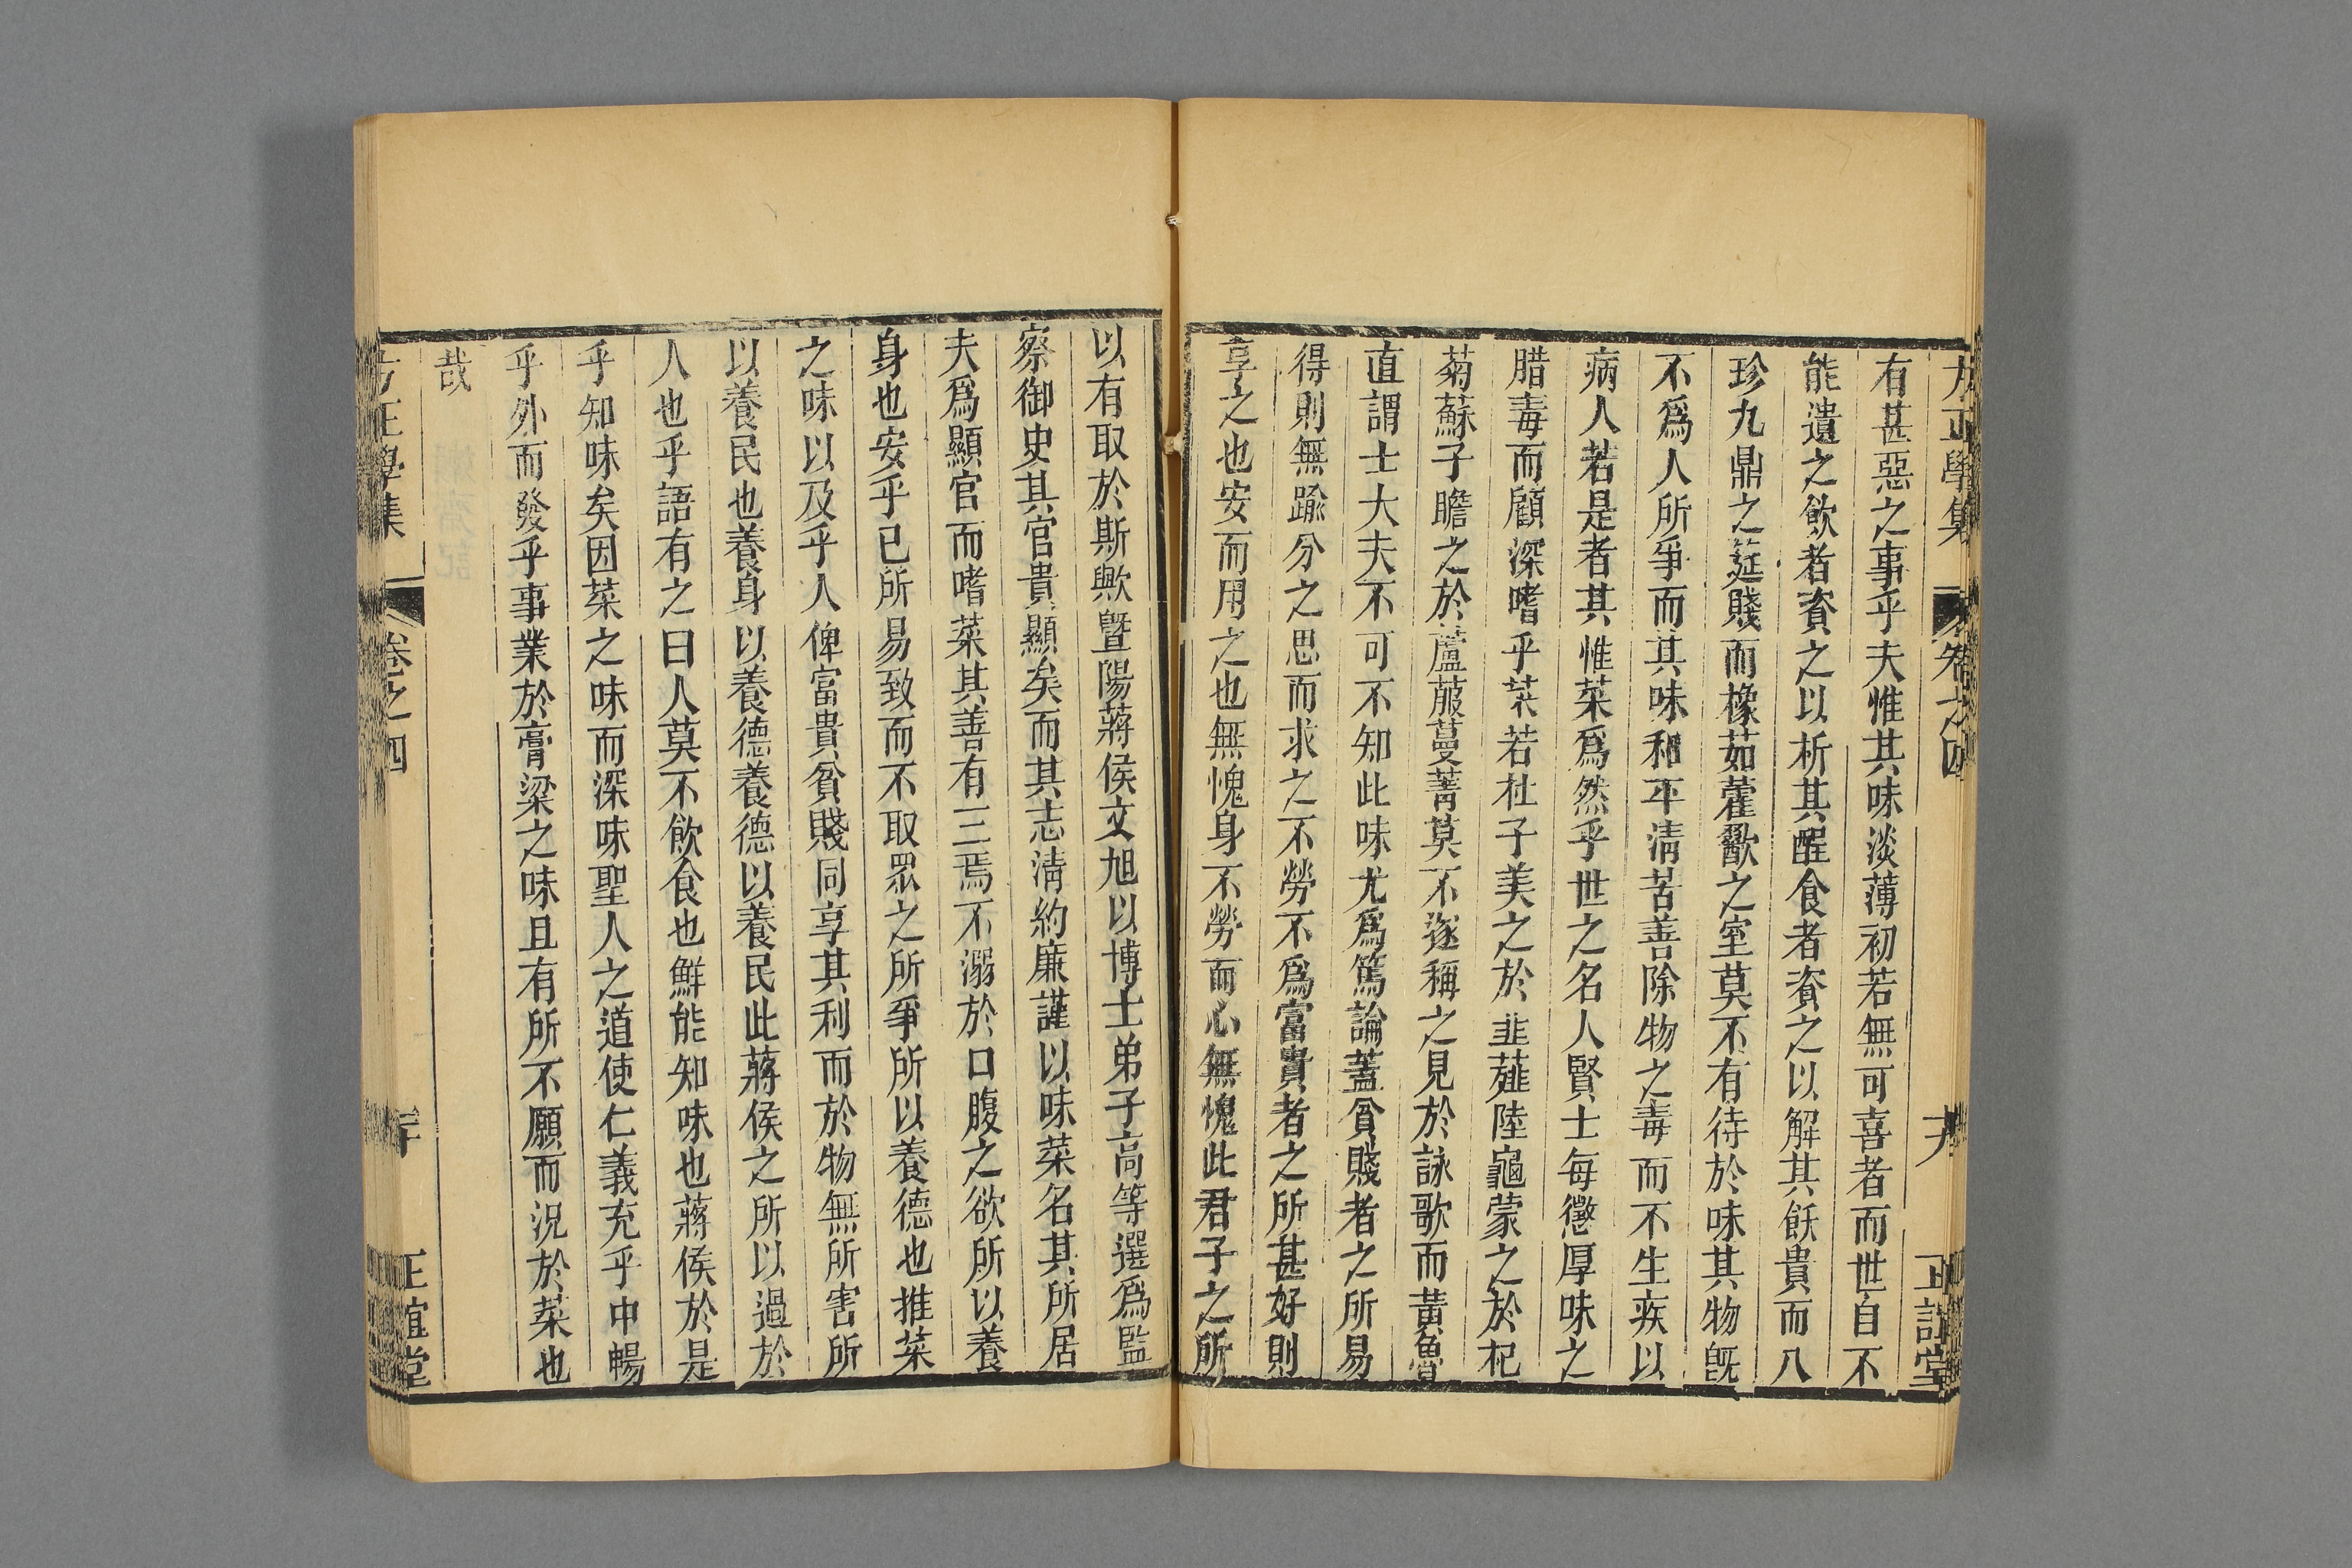 方正學集 卷之四 十九 正誼堂
有甚惡之事乎夫惟其味淡薄初若無可喜者而世自不
能遺之飲者資之以析其酲食者資之以解其飫貴而八
珍九鼎之筵賤而橡茹藿歠之室莫不有待於味其物旣
不爲人所爭而其味和平淸苦善除物之毒而不生疾以
病人若是者其惟菜爲然乎世之名人賢士每懲厚味之
腊毒而顧深嗜乎菜若杜子美之於韭薤陸龜蒙之於杞
菊蘇子瞻之於蘆菔蔓菁莫不遂稱之見於詠歌而黃魯
直謂士大夫不可不知此味尤爲篤論蓋貧賤者之所易
得則無踰分之思而求之不勞不爲富貴者之所甚好則
享之也安而用之也無愧身不勞而心無愧此君子之所
以有取於斯歟曁陽蔣侯文旭以博士弟子高等選爲監
察御史其官貴顯矣而其志淸約廉謹以味菜名其所居
夫爲顯官而嗜菜其善有三焉不溺於口腹之欲所以養
身也安乎已所易致而不取眾之所爭所以養德也推菜
之味以及乎人俾富貴貧賤同享其利而於物無所害所
以養民也養身以養德養德以養民此蔣侯之所以過於
人也乎語有之曰人莫不飲食也鮮能知味也蔣侯於是
乎知味矣因菜之味而深味聖人之道使仁義充乎中暢
乎外而發乎事業於膏粱之味且有所不願而況於菜也
哉
方正學集 卷之四 二十 正誼堂